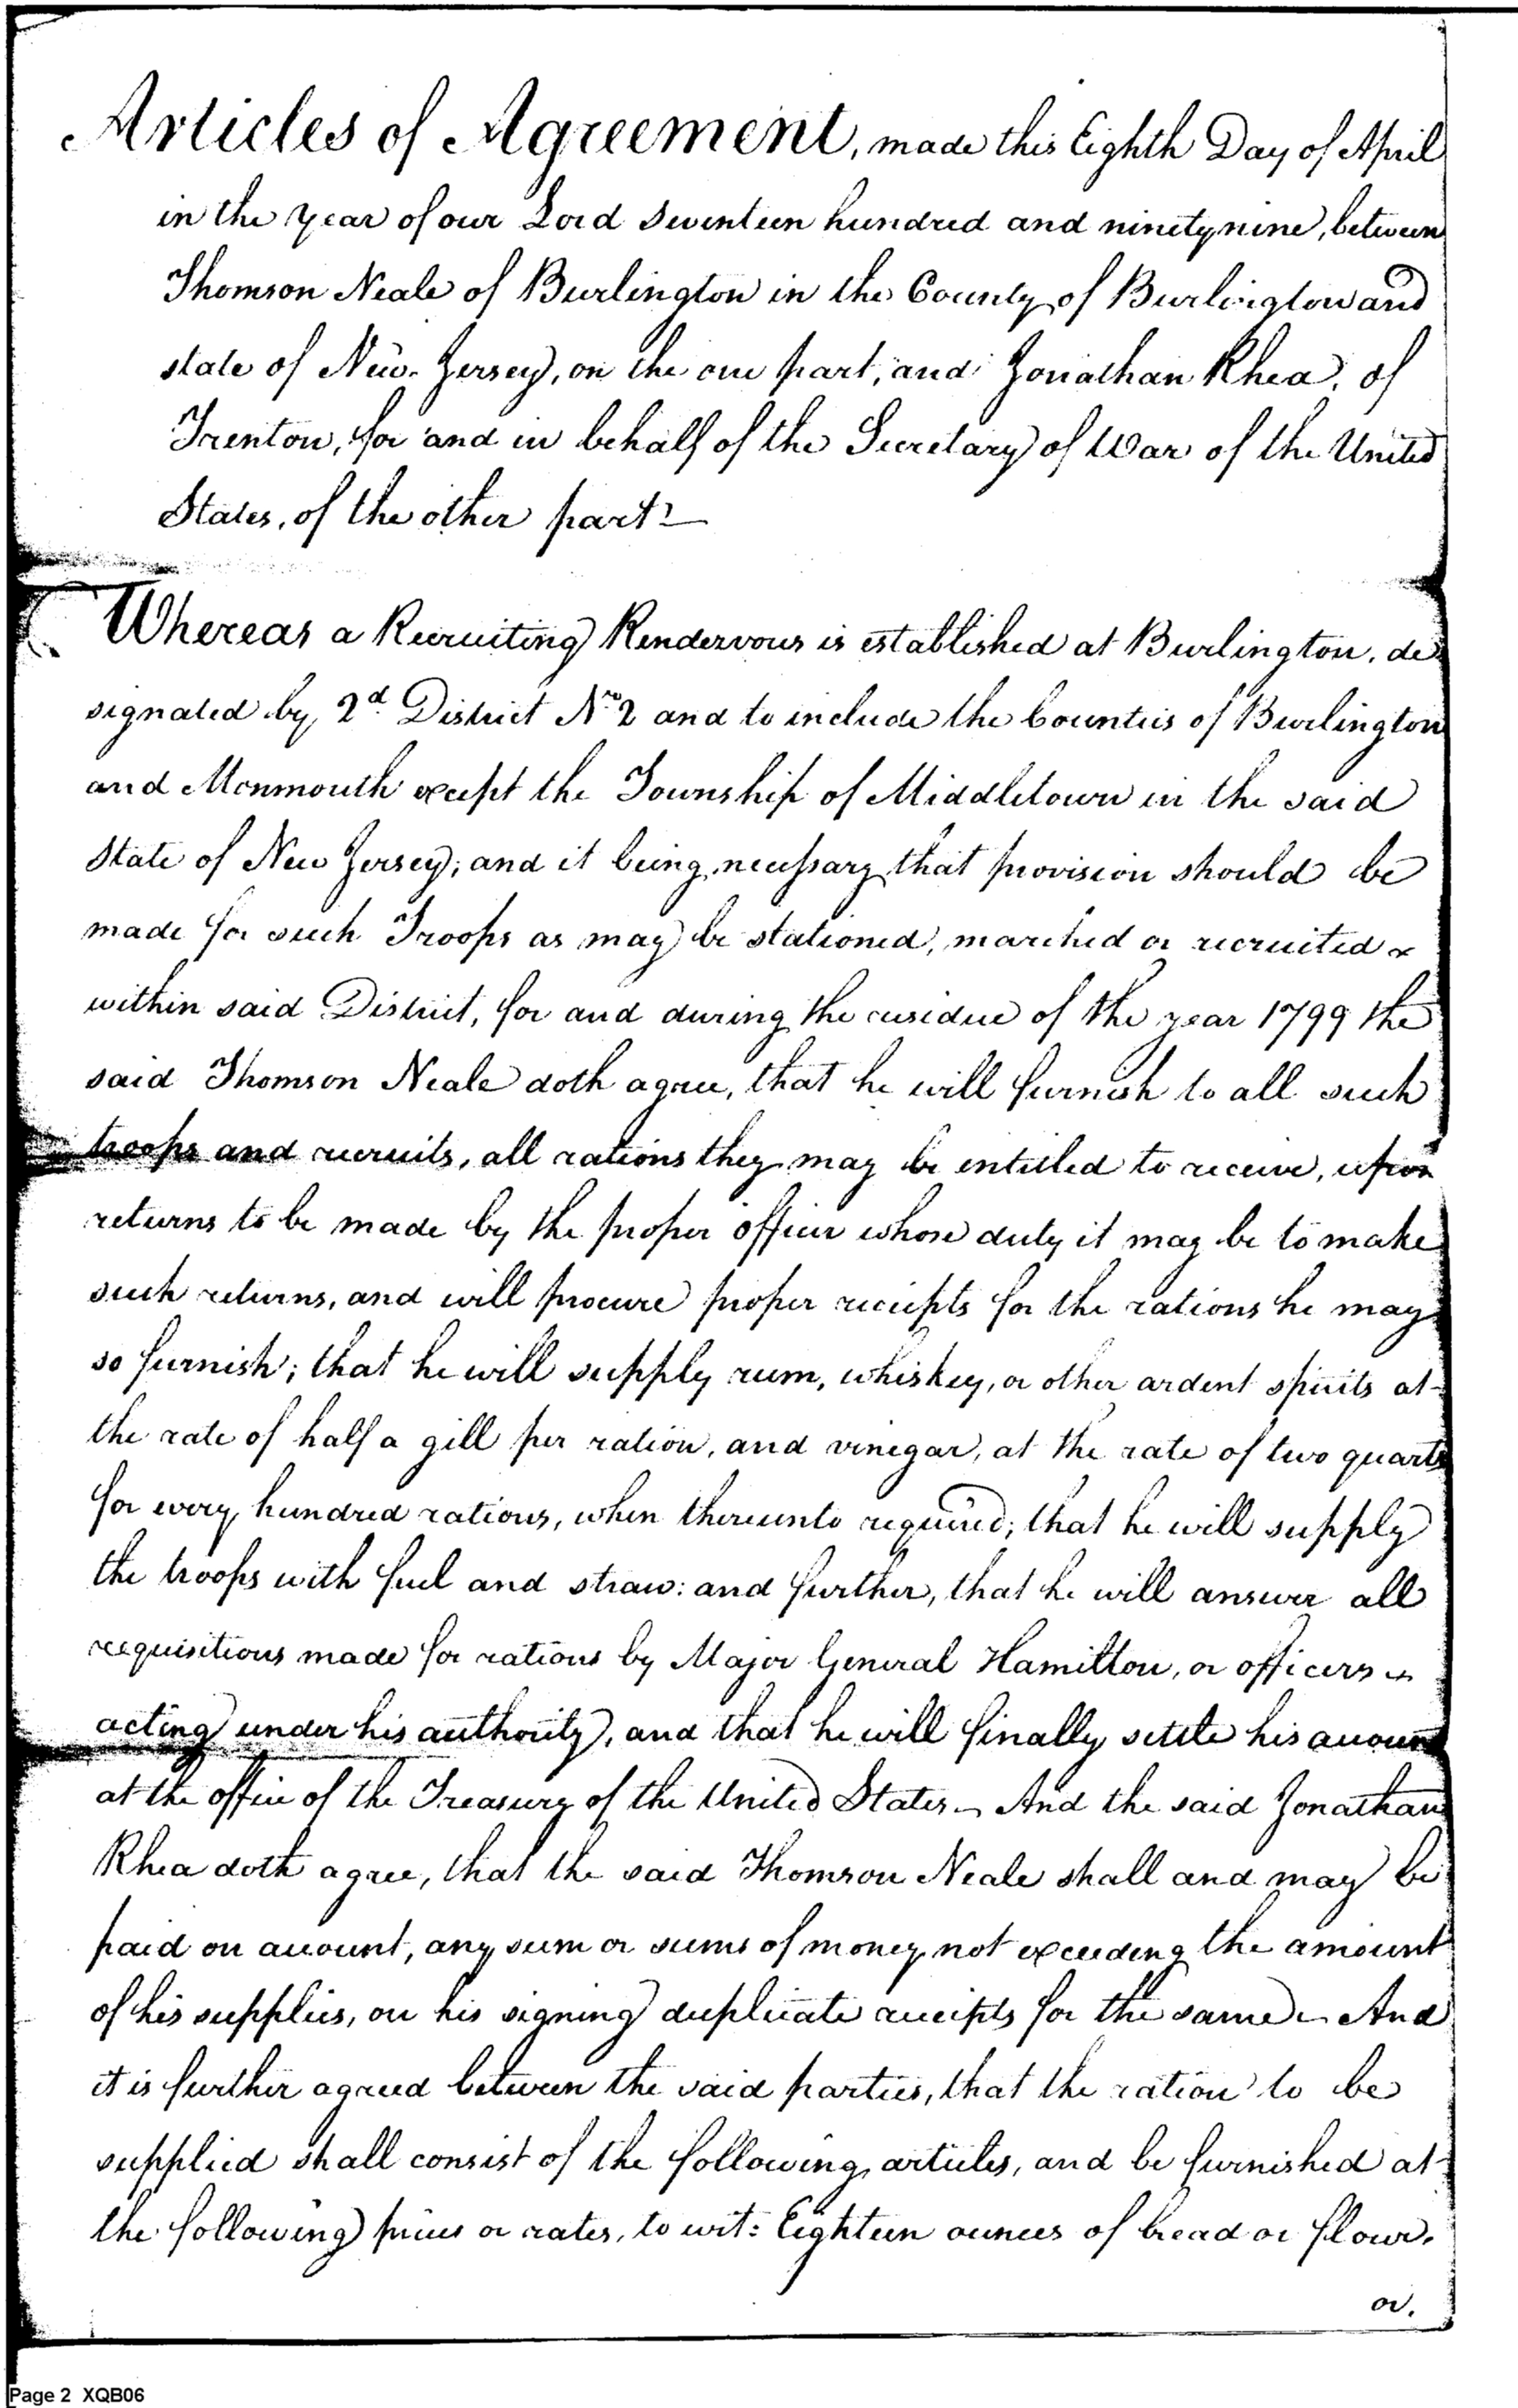 Articles of Agreement, made this Eighth Day of April
in the year of our Lord Seventeen hundred and ninety nine, between
Thomson Neale of Burlington in the County of Burlington and
state of New-Jersey, on the one part, and Jonathan Rhea, of
Trenton, for and in behalf of the Secretary of War of the United
States, of the other part—
Whereas a Recruiting Rendezvous is established at Burlington, de
signated by 2d District No 2 and to include the Counties of Burlington
and Monmouth except the Township of Middletown in the said
State of New Jersey; and it being necessary that provision should be
made for such Troops as may be stationed, marched or recruited
within said District, for and during the residue of the year 1799 the
said Thomson Neale doth agree, that he will furnish to all such
troops and recruits, all rations they may be entitled to receive, upon
returns to be made by the proper officer whose duty it may be to make
such returns, and will procure proper receipts for the rations he may
so furnish; that he will supply rum, whiskey, or other ardent spirits at
the rate of half a gill per ration, and vinegar, at the rate of two quarts
for every hundred rations, when thereunto required; that he will supply
the troops with fuel and straw: and further, that he will answer all
requisitions made for rations by Major General Hamilton, or officers
acting under his authority, and that he will finally settle his account
at the office of the Treasury of the United States— And the said Jonathan
Rhea doth agree, that the said Thomson Neale shall and may be
paid on account, any sum or sums of money not exceeding the amount
of his supplies, on his signing duplicate receipts for the same— And
it is further agreed between the said parties, that the ration to be
supplied shall consist of the following articles, and be furnished at
the following prices or rates, to wit: Eighteen ounces of bread or flour,
or.
Page 2 XQB06